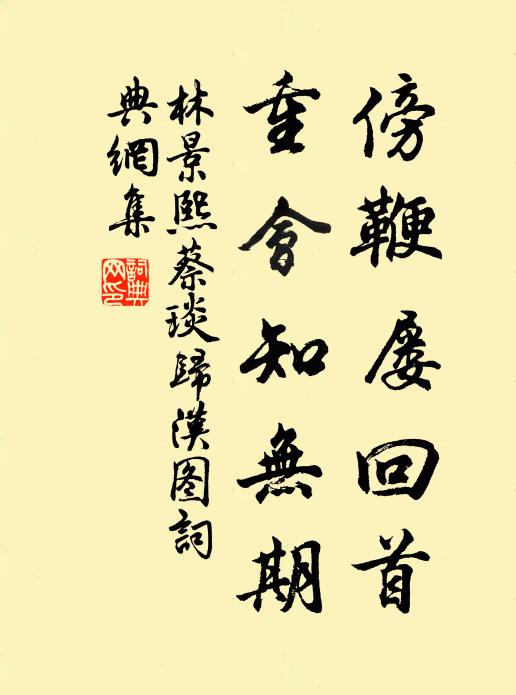 傍鞭屡回首
重會知無期
林景熙蔡琰歸漢图詞
典網集
詞典网印